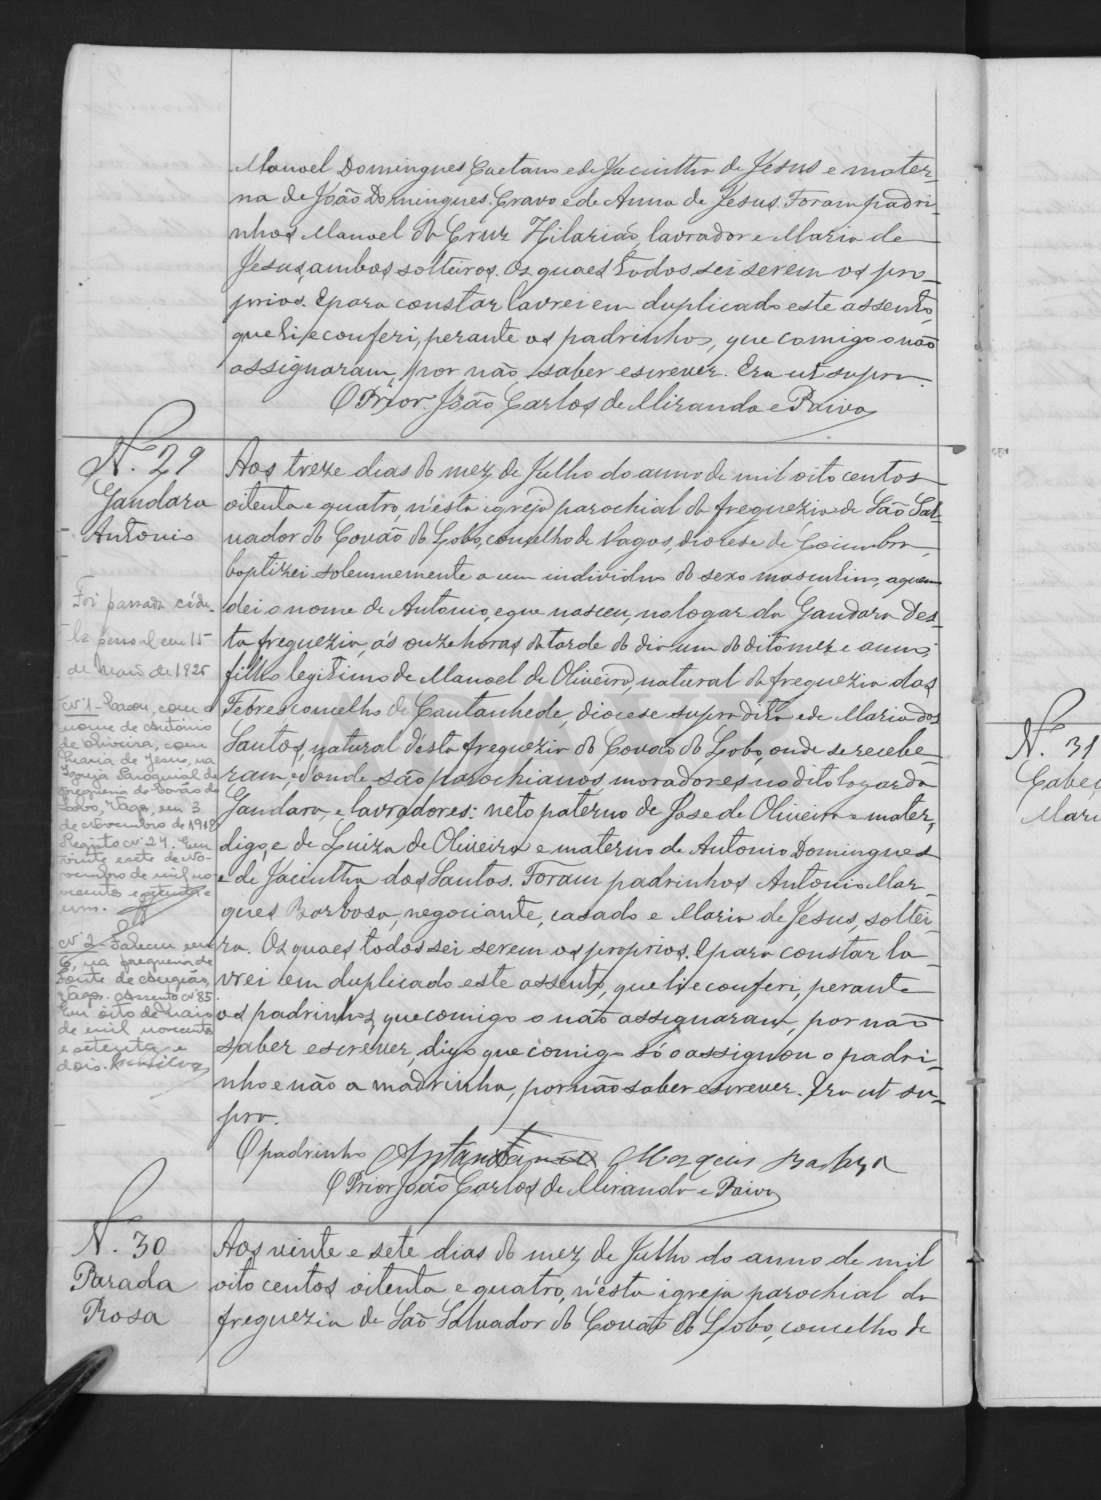 Manoel Domingues Caetano e de Jacintha de Jesus e mater-
na de João Domingues Cravo e de Anna de Jesus. Foram padri-
nhos Manoel da Cruz Hilario, lavrador e Maria de
Jesus, ambos solteiros. Os quaes todos sei serem os pro-
prios. E para constar lavrei em duplicado este assento,
que li, e conferi, perante os padrinhos, que comigo o não
assignaram, por não saber escrever. Era ut supra.
O Prior João Carlos de Miranda e Paiva
N. 29
Gandara
Antonio
Aos treze dias do mez de Julho do anno de mil oito centos
oitenta e quatro, n'esta igreja parochial da freguezia de São Sal-
vador do Covão do Lobo, concelho de Vagos, diocese de Coimbra,
baptizei solemnemente a um individuo do sexo masculino, a quem
dei o nome de Antonio, e que nasceu, no logar da Gandara d'es-
ta freguezia, ás onze horas da tarde do dia um do dito mez e anno,
filho legitimo de Manoel de Oliveira, natural da freguezia das
Febres concelho de Cantanhede, diocese supra dita e de Maria dos
Santos, natural d'esta freguezia do Covão do Lobo, onde se recebe-
ram, e d'onde são parochianos, moradores no dito logar da
Gandara, e lavradores: neto paterno de Jose de Oliveira e mater,
digo, e de Luiza de Oliveira e materno de Antonio Domingues
e de Jacintha dos Santos. Foram padrinhos Antonio Mar-
ques Barbosa, negociante, casado e Maria de Jesus, soltei-
ra. Os quaes todos sei serem os proprios. E para constar la-
vrei em duplicado este assento, que li e conferi, perante
os padrinhos, que comigo o não assignaram, por não
saber escrever, digo que comigo só o assignou o padri-
nho e não a madrinha, por não saber escrever. Era ut su-
pra.
O padrinho Marques Barboza
O Prior João Carlos de Miranda e Paiva
Foi passada cédu-
la pessoal em 15
de Maio de 1925
Nº 1 - Casou, com o
nome de António
de Oliveira, com
Maria de Jesus, na
Igreja Paroquial da
freguesia do Covão do
Lobo, Vagos, em 3
de Novembro de 1912
Registo nº 24. Em
vinte e sete de No-
vembro de mil no-
vecentos e
um.
Nº 2 - Faleceu em
6, na freguesia de
Fonte de Angeão,
Vagos. Assento nº 85.
Em oito de Maio
de mil novecentos
e setenta e
dois.
N. 30
Parada
Rosa
Aos vinte e sete dias do mez de Julho do anno de mil
oito centos oitenta e quatro, n'esta igreja parochial da
freguezia de São Salvador do Covão do Lobo, concelho de
N. 31
Cabeç
Mari